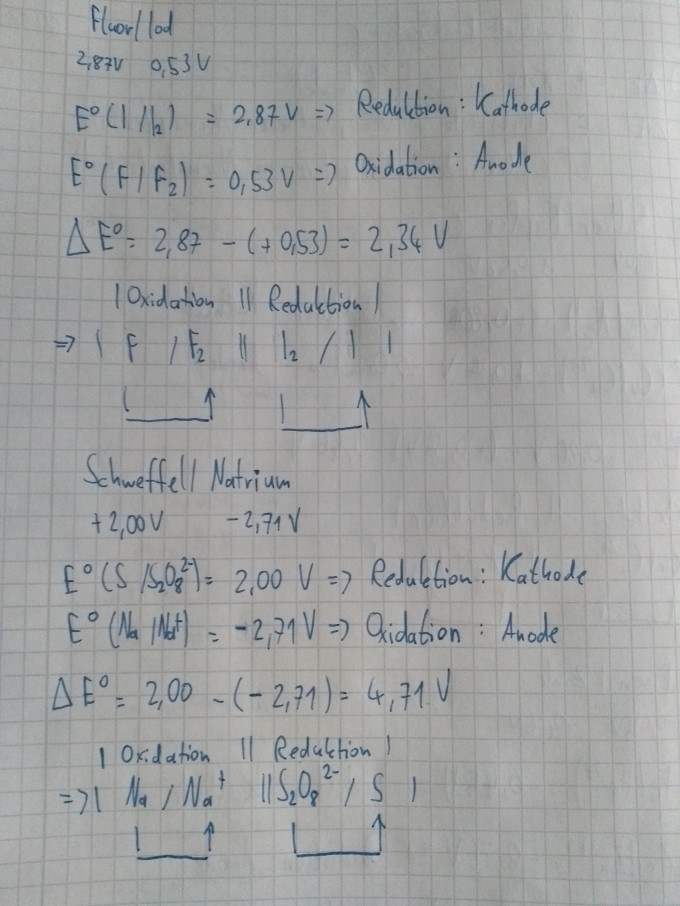 Fluor/Iod
2,87V 0,53V
E°(I/I₂) = 2,87 V => Reduktion : Kathode
E°(F/F₂) = 0,53 V => Oxidation : Anode
ΔE° = 2,87 - (+0,53) = 2,34 V
| Oxidation || Reduktion |
=> | F / F₂ || I₂ / I |
Schweffel/ Natrium
+2,00V -2,71V
E°(S/S₂O₈²⁻) = 2,00 V => Reduktion : Kathode
E°(Na/Na⁺) = -2,71V => Oxidation : Anode
ΔE° = 2,00 - (-2,71) = 4,71 V
| Oxidation || Reduktion |
=> | Na / Na⁺ || S₂O₈²⁻ / S |